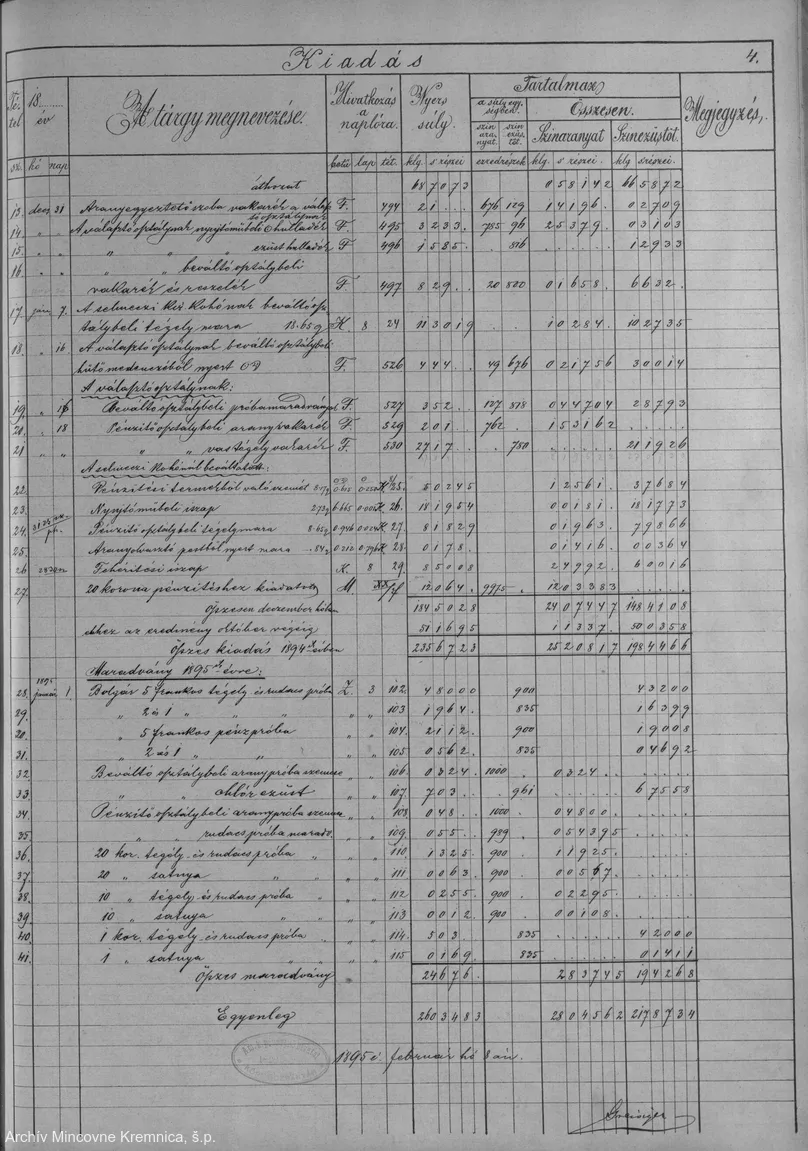 Kiadás 4.
Tétel sz. 18 év hó nap A tárgy megnevezése. Hivatkozás a naplóra. Nyers súly. Tartalmaz Megjegyzés.
a súlyegységben. Összesen.
szinaranyat. szinezüstöt. Szinaranyat Szinezüstöt.
betü lap tét. klg. s részei ezredrészek klg. s részei. klg s részei.
áthozat 687073 058142 665872
13. dec 31 Aranyegyeztető szoba vakaréka válasz
tó osztálynak F. 494 21 676 129 14196. 02709
14. „ „ A választó osztálynak nyujtóműbeli O hulladék F. 495 3233. 785 96 25379. 03103
15. „ „ „ „ ezüst hulladék F 496 1585. 816 12933
16. „ „ „ beváltó osztálybeli
vakarék és reszelék F. 497 829. 20 800 01658. 6632.
17. jan 7. A selmeczi kir. kohónak beváltó osz
tálybeli tégely mara 18.65g K 8 24 113019 10284. 102735
18. „ 16 A választó osztálynak beváltó osztálybeli
hűtő medenczéből nyert OD F. 526 444. 49 676 021756 30014
A választó osztálynak:
19. „ 16 Beváltó osztálybeli próbamaradványok F. 527 352. 127 818 044704 28793
20. „ 18 Pénzitő osztálybeli arany vakarék F. 529 201 762 153162
21 „ „ „ „ vastégely vakarék F. 530 2717. 780 211926
A selmeczi kohónál beváltatott:
22. Pénzitési termekből való szemét K. 25. 50245 12561. 37684
23. Nyujtóműbeli iszap K 26. 181954 00181. 181773
24. Pénzitő osztálybeli tégelymara K. 27. 81829 01963. 79866
25. Aranyolvasztó pestből nyert mara K. 28 0178. 01416. 00364
26 Fehéritési iszap K. 8 29. 85008 24992. 60016
27. 20 korona pénzitéshez kiadatott M. 12064. 9975 1203383
Öszesen deczember hóban 1845028 2407447 1484108
ehhez az eredmény október végéig 511695 11337. 500358
Öszes kiadás 1894 évben 2356723 2520817 1984466
Maradvány 1895 évre:
28. 1895 január 1. Bolgár 5 frankos tégely és rudacs próba Z. 3 102. 48000 900 43200
29. „ 2 és 1 „ „ „ „ „ 103 1964. 835 16399
30. „ 5 frankos pénzpróba „ „ 104. 2112. 900 19008
31. „ 2 és 1 „ „ „ „ 105 0562. 835 04692
32 Beváltó osztálybeli arany próba szemcse „ „ 106. 0324. 1000 0324.
33. „ „ chlór ezüst „ „ 107. 703. 961 67558
34. Pénzitő osztálybeli arany próba szemcse „ „ 108 048. 1000 04800.
35. „ „ rudacs próba marado. „ „ 109. 055. 989 054395
36. 20 kor. tégely és rudacs próba „ „ „ 110 1325. 900 11925.
37. 20 „ satnya „ „ „ 111 0063. 900 00567.
38. 10 „ tégely és rudacs próba „ „ 112 0255. 900 02295.
39. 10 „ satnya „ „ „ 113 0012. 900 00108.
40. 1 kor. tégely és rudacs próba „ „ 114. 503 835 42000
41. 1 „ satnya „ „ „ 115 0169. 835 01411
Öszes maradvány 24676. 283745 194268
Egyenleg 2603483 2804562 2178734
1895 é. február hó 8 án.
Archív Mincovne Kremnica, š.p.